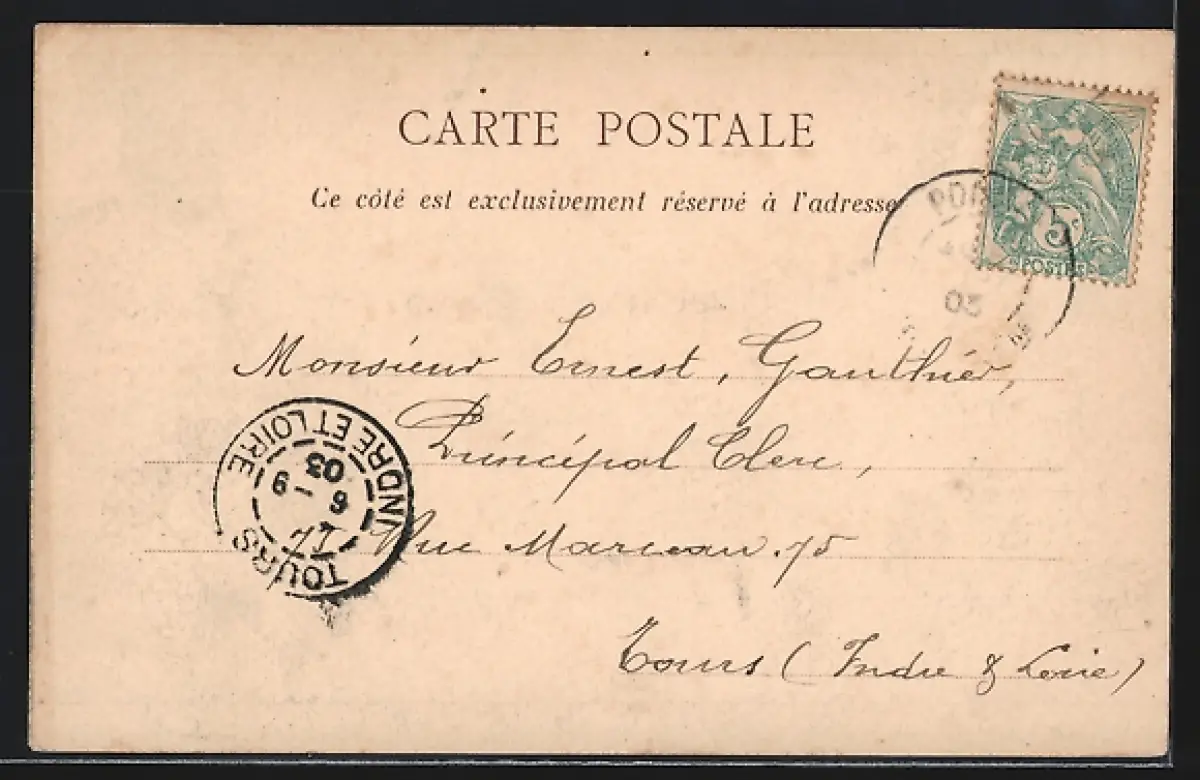 CARTE POSTALE
Ce côté est exclusivement réservé à l'adresse
5
POSTES
03
Monsieur Ernest, Gauthier,
Principal Clerc,
Rue Marceau. 75
Tours (Indre & Loire)
TOURS
INDRE ET LOIRE
6 - 9
03